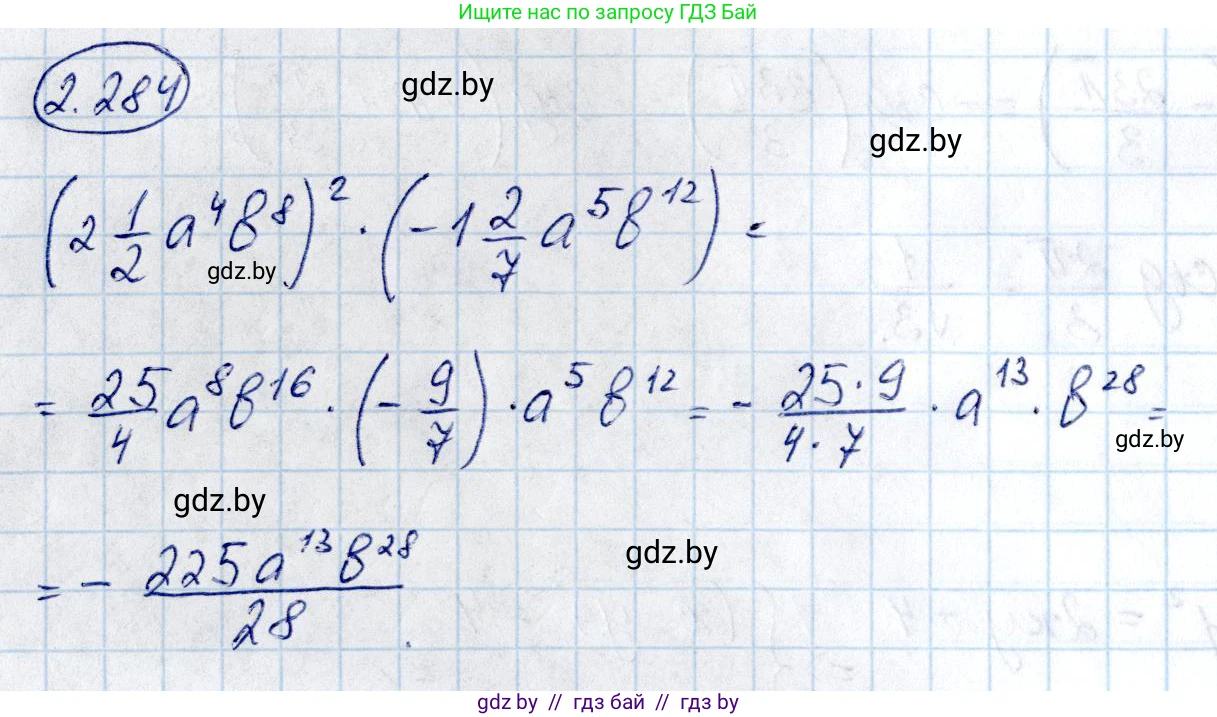 Ищите нас по запросу ГДЗ Бай
2.284
gdz.by
gdz.by
(2 1/2 a⁴b⁸)² · (-1 2/7 a⁵b¹²) =
gdz.by
= 25/4 a⁸b¹⁶ · (-9/7) · a⁵b¹² = - 25·9/4·7 · a¹³ · b²⁸ =
gdz.by
gdz.by
gdz.by
= - 225a¹³b²⁸/28.
gdz.by // гдз бай // гдз by